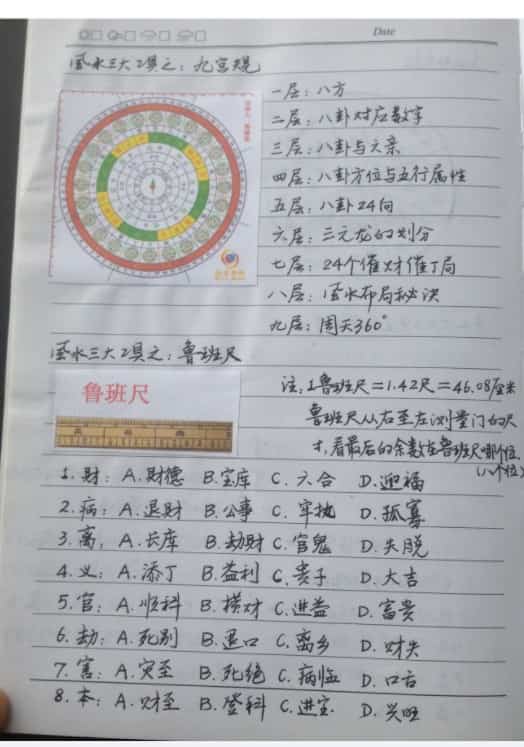 Date
风水三大工具之：九宫规
一层：八方
二层：八卦对应数字
三层：八卦与六亲
四层：八卦方位与五行属性
五层：八卦24向
六层：三元龙的划分
七层：24个催财催丁局
八层：风水布局秘诀
九层：周天360°
风水三大工具之：鲁班尺
鲁班尺
注：1鲁班尺=1.42尺=46.08厘米
鲁班尺从右至左测量门的尺
寸，看最后的余数在鲁班尺哪个位
(八个位)
1. 财：A. 财德 B. 宝库 C. 六合 D. 迎福
2. 病：A. 退财 B. 公事 C. 牢执 D. 孤寡
3. 离：A. 长库 B. 劫财 C. 官鬼 D. 失脱
4. 义：A. 添丁 B. 益利 C. 贵子 D. 大吉
5. 官：A. 顺科 B. 横财 C. 进益 D. 富贵
6. 劫：A. 死别 B. 退口 C. 离乡 D. 财失
7. 害：A. 灾至 B. 死绝 C. 病临 D. 口舌
8. 本：A. 财至 B. 登科 C. 进宝 D. 兴旺